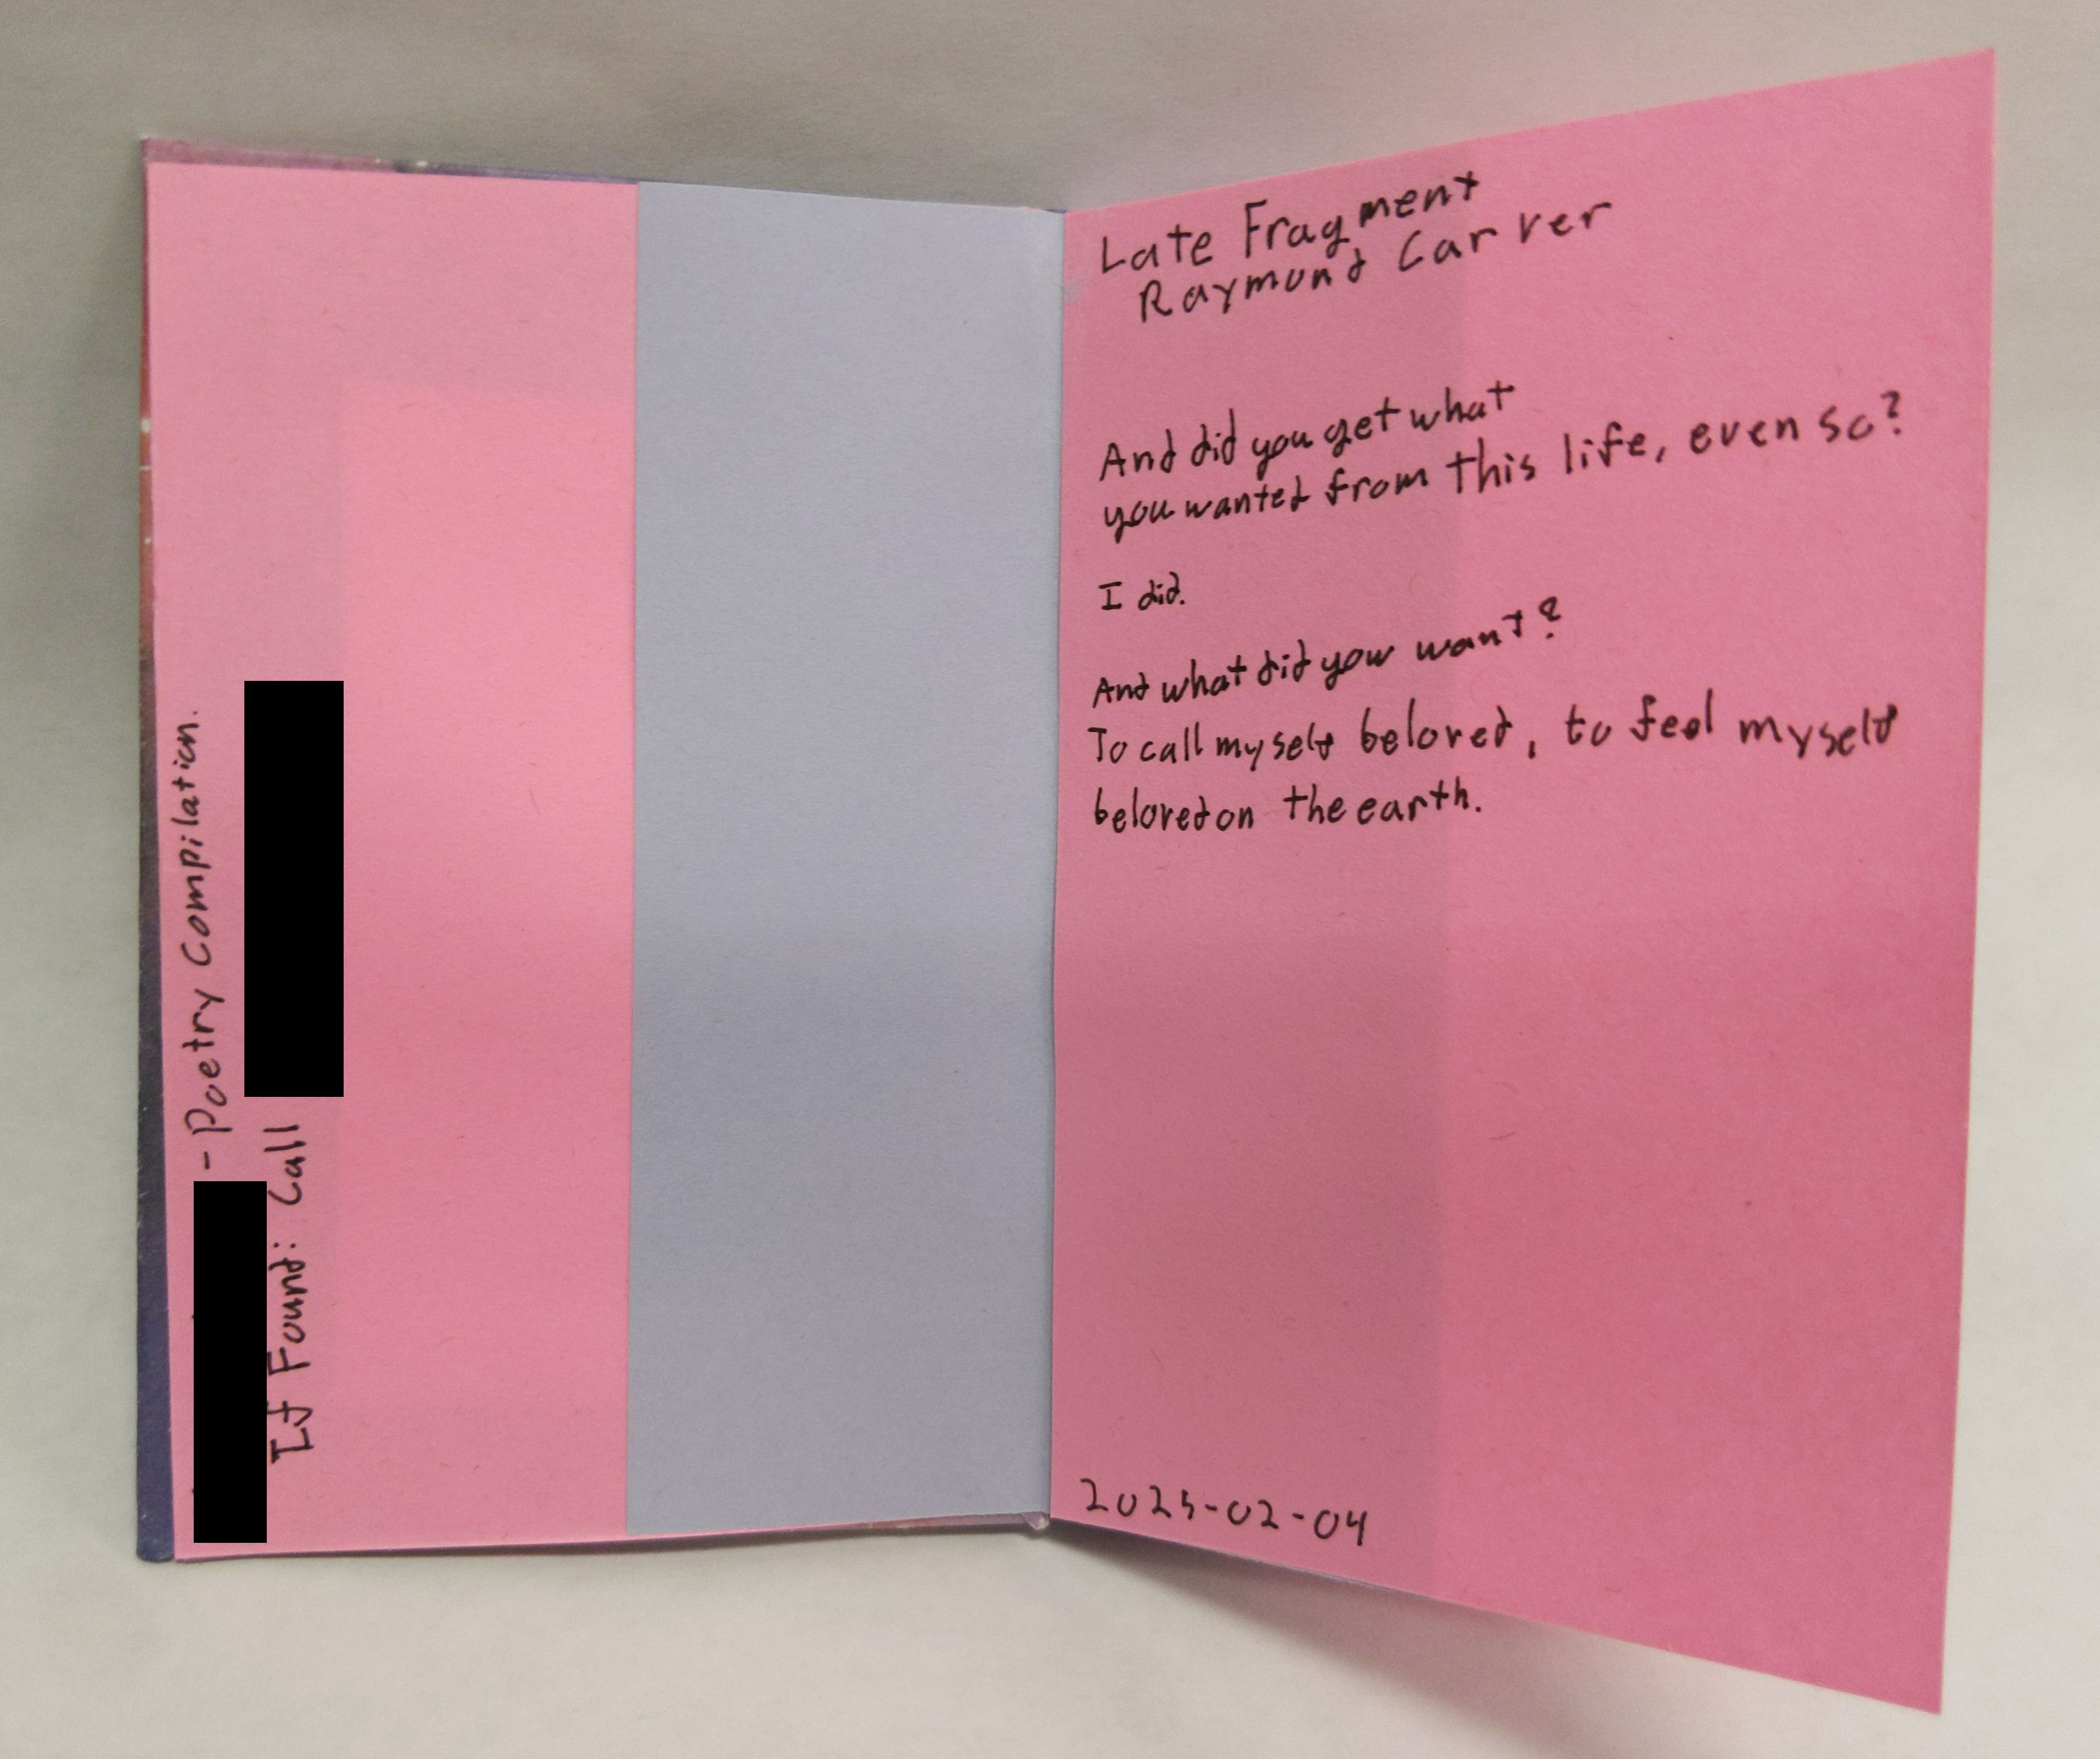 - Poetry Compilation.
If Found: Call
Late Fragment
Raymond Carver
And did you get what
you wanted from this life, even so?
I did.
And what did you want?
To call myself beloved, to feel myself
beloved on the earth.
2025-02-04